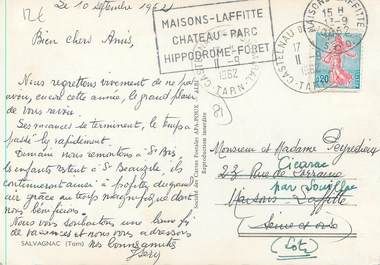 Le 10 septembre 1962
Bien chers Amis,
Nous regrettons vivement de ne pas
avoir, encore cette année, le grand plaisir
de vous revoir.
Les vacances se terminent, le temps a
passé très rapidement.
Demain nous remontons à St
les enfants restent à St Beauzile. Ils
continueront ainsi à profiter du grand
air grâce au temps magnifique dont nous
bénéficions.
Nous vous souhaitons une bonne fin
de vacances et nous vous adressons
nos bonnes amitiés
SALVAGNAC (Tarn)
Société des Cartes Postales APA-POUX - ALBI
Reproduction interdite
MAISONS-LAFFITTE
CHATEAU-PARC
HIPPODROME-FORET
MAISONS-LAFFITTE
15 H
13-9
1962
CASTELNAU DE
TARN
17
11-9
1962
0,20
81
Monsieur et Madame Peyredieu
Cieurac
23 Rue de Lorraine
par Souillac
Maisons-Laffitte
Seine et Oise
(Lot)